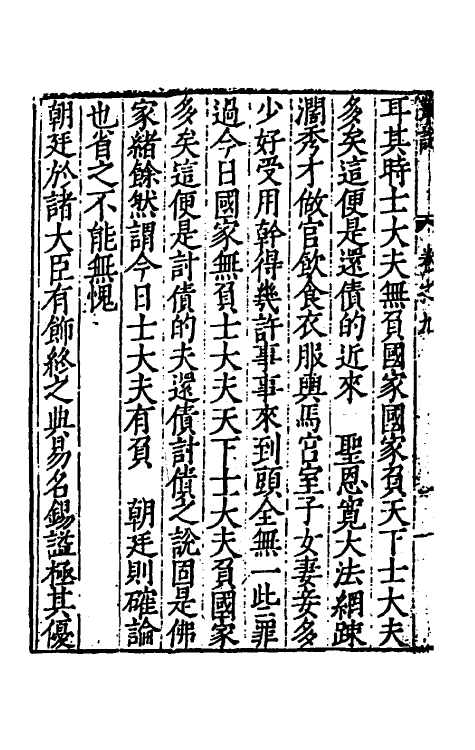 耳其時士大夫無負國家國家負天下士大夫
多矣這便是還債的近來　聖恩寬大法網踈
濶秀才做官飲食衣服輿馬宮室子女妻妾多
少好受用幹得幾許事事來到頭全無一些罪
過今日國家無負士大夫天下士大夫負國家
多矣這便是討債的夫還債討債之說固是佛
家緒餘然謂今日士大夫有負　朝廷則確論
也省之不能無愧
朝廷於諸大臣有飾終之典易名錫謚極其優
卷之九